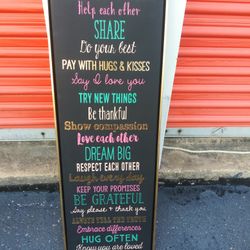 Help each other
SHARE
Do your best
PAY WITH HUGS & KISSES
Say I love you
TRY NEW THINGS
Be thankful
Show compassion
Love each other
DREAM BIG
RESPECT EACH OTHER
Laugh every day
KEEP YOUR PROMISES
BE GRATEFUL
Say please & thank you
ALWAYS TELL THE TRUTH
Embrace differences
HUG OFTEN
Know you are loved